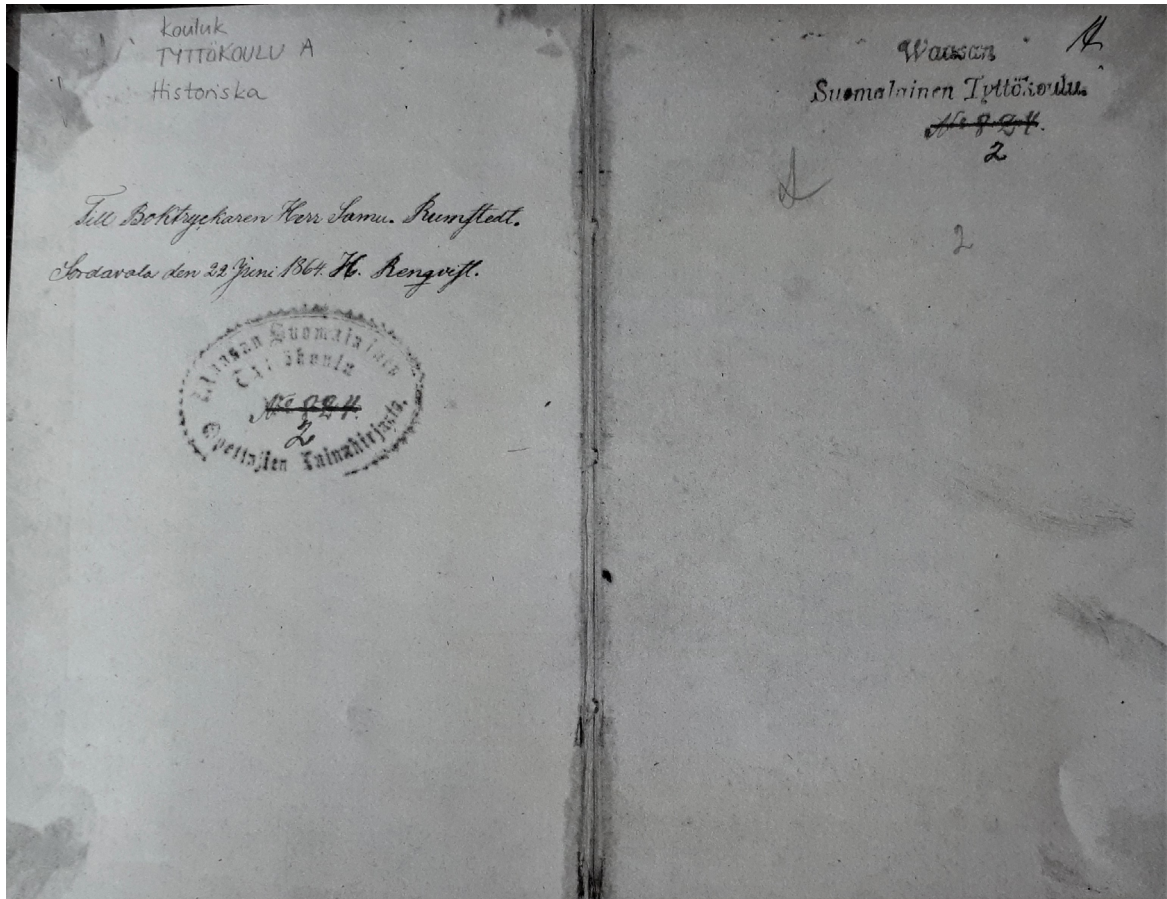 kouluk
TYTTÖKOULU A
Historiska
Till Boktryckaren Herr Samu. Rumstedt.
Sordavala den 22 Juni 1864. H. Renqvist.
Waasan Suomalainen
Tyttökoulu
No 824.
2
Opettajien Lainakirjasto.
A
Waasan
Suomalainen Tyttökoulu.
No 824.
2
A
2